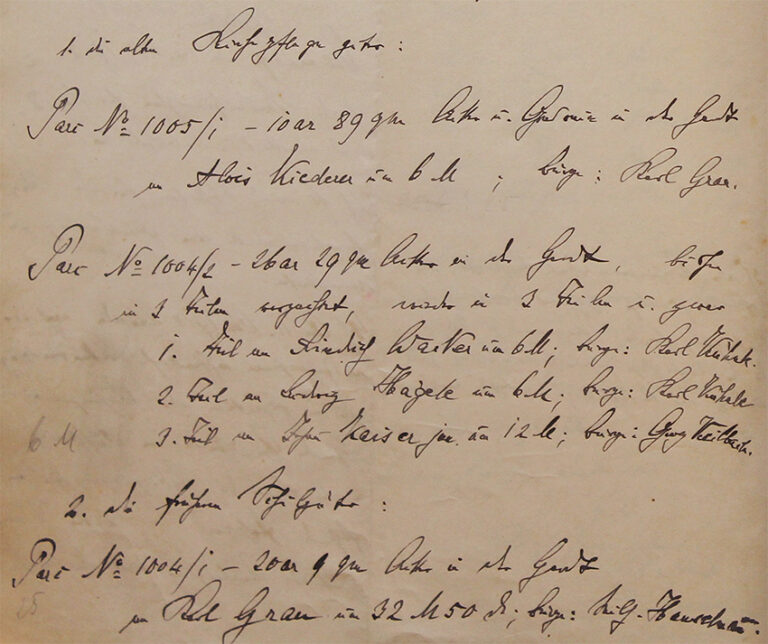 1. die alten Kirchenpflegegüter:
Parc No 1005/1 - 10 ar 89 qm Acker u. in der
an Alois Kiederer um 6 M ; Bürge: Karl Grau.
Parc No 1004/2 - 26 ar 29 qm Acker in der , bisher
in 3 Teilen verpachtet, wieder in 3 Teilen u. zwar
1. Teil an Friedrich Wacker um 6 M; Bürge: Karl
2. Teil an Ludwig Hägele um 6 M; Bürge: Karl
6 M
3. Teil an Kaiser jun. um 12 M; Bürge: Georg
2. die früheren Schulgüter:
Parc No 1004/1 - 20 ar 9 qm Acker in der
25
an Karl Grau um 32 M 50 ; Bürge: